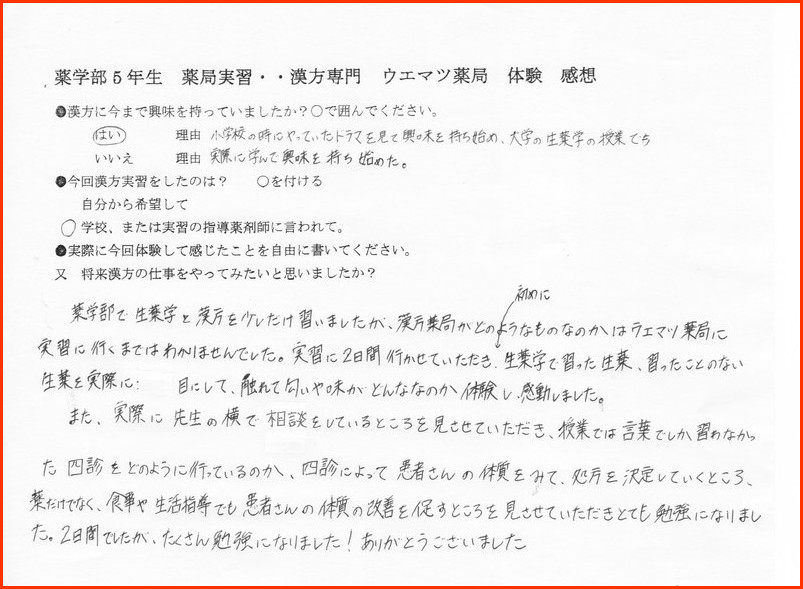 薬学部5年生　薬局実習・・漢方専門　ウエマツ薬局　体験　感想
●漢方に今まで興味を持っていましたか？○で囲んでください。
はい　理由　小学校の時にやっていたドラマを見て興味を持ち始め、大学の生薬学の授業でも
いいえ　理由　実際に学んで興味を持ち始めた。
●今回漢方実習をしたのは？　○を付ける
自分から希望して
○学校、または実習の指導薬剤師に言われて。
●実際に今回体験して感じたことを自由に書いてください。
又　将来漢方の仕事をやってみたいと思いましたか？
初めに
薬学部で生薬学と漢方を少しだけ習いましたが、漢方薬局がどのようなものなのかはウエマツ薬局に
実習に行くまではわかりませんでした。実習に2日間行かせていただき、生薬学で習った生薬、習ったことのない
生薬を実際に　目にして、触れて匂いや味がどんななのか体験し感動しました。
また、実際に先生の横で相談をしているところを見させていただき、授業では言葉でしか習わなかっ
た四診をどのように行っているのか、四診によって患者さんの体質をみて、処方を決定していくところ、
薬だけでなく、食事や生活指導でも患者さんの体質の改善を促すところを見させていただきとても勉強になりまし
た。2日間でしたが、たくさん勉強になりました！ありがとうございました